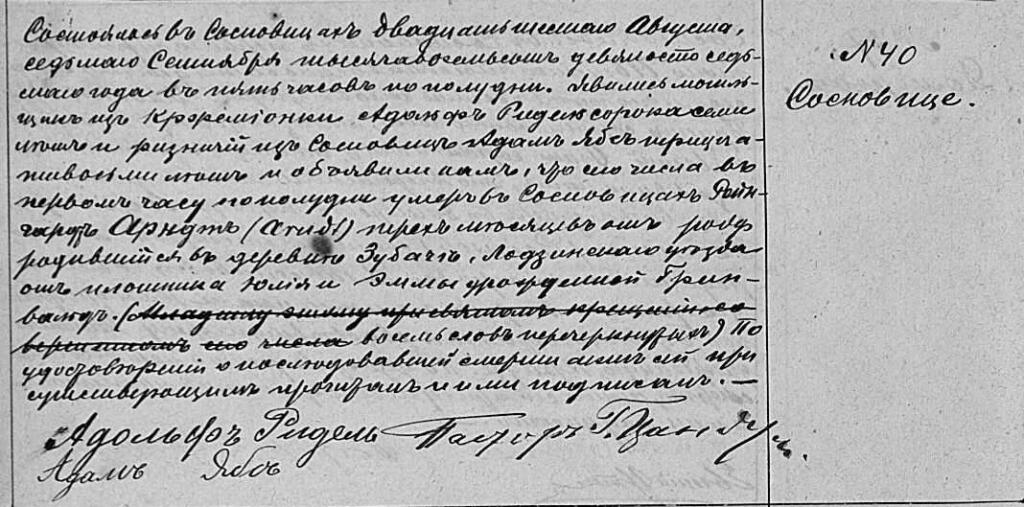 Состоялось въ Сосновицахъ двадцать шестаго Августа,
седьмаго Сентября тысяча восемьсотъ девяносто седь-
маго года въ пять часовъ по полудни. Явились могиль-
щикъ изъ Адольфъ Ридель сорока семи
лѣтъ и ризничій изъ Сосновицъ Адамъ Ябсъ
лѣтъ и объявили намъ, что сего числа въ
первомъ часу по полудни умеръ въ Сосновицахъ Рейн-
Арндтъ (Arndt) трехъ мѣсяцевъ отъ роду
родившійся въ деревнѣ Зубачѣ, Лодзинскаго уѣзда
отъ плотника Юлія и Эммы урожденной Грин-
вальдъ. (Младенцу этому при святомъ крещеніи со
вершенномъ сего числа восемь словъ перечеркнутыхъ) По
удостовѣреніи о послѣдовавшей смерти актъ сей при
сутствующимъ прочитанъ и ими подписанъ. —
Адольфъ Ридель Пасторъ Г. Цандеръ.
Адамъ Ябсъ
N 40
Сосновице.